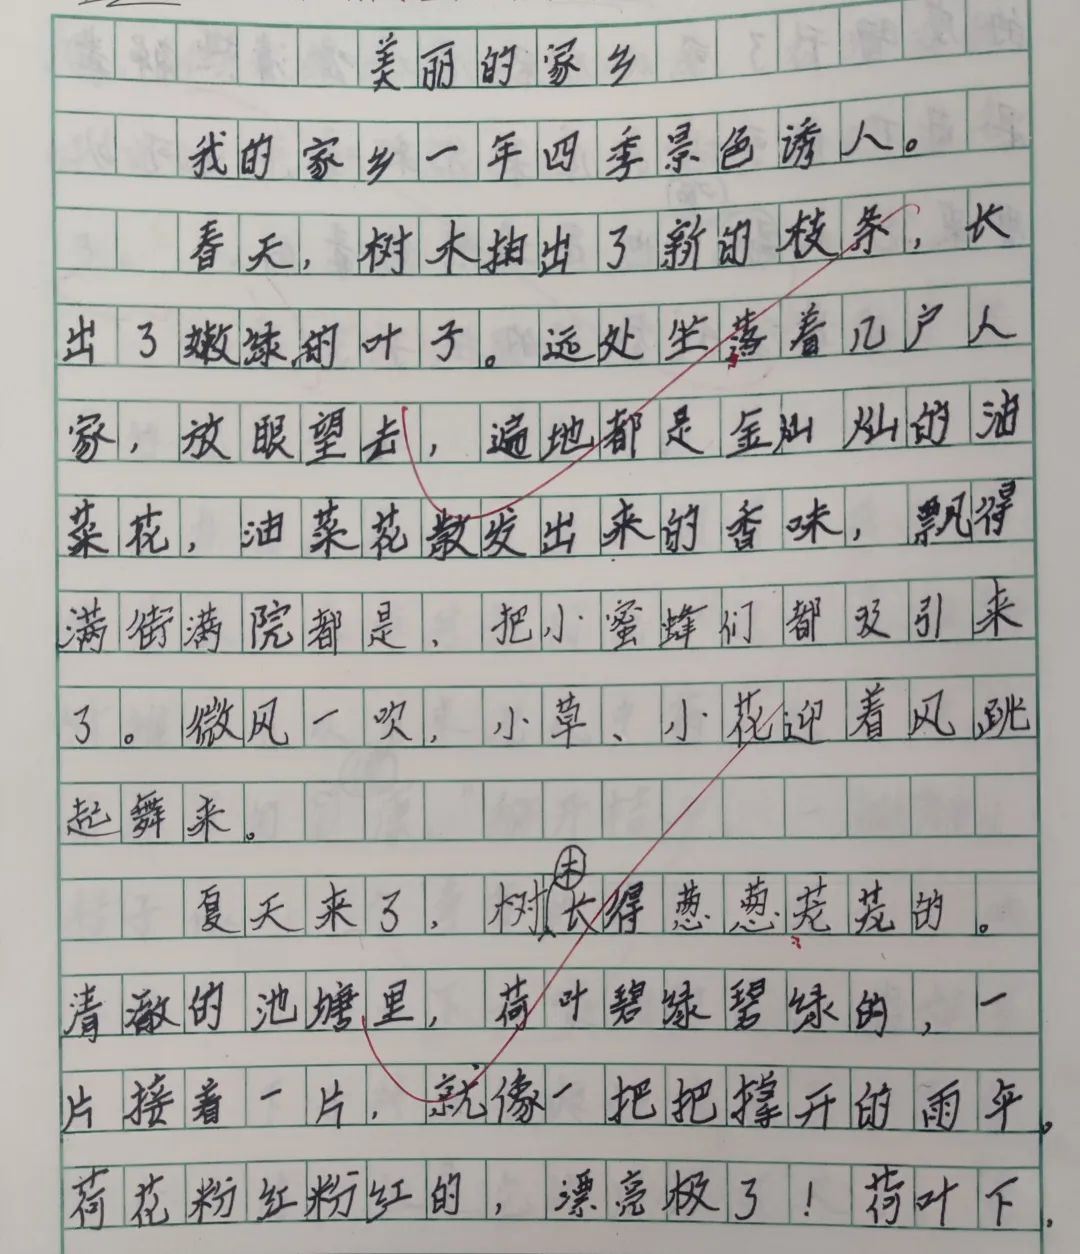 美丽的家乡
我的家乡一年四季景色诱人。
春天，树木抽出了新的枝条，长
出了嫩绿的叶子。远处坐落着几户人
家，放眼望去，遍地都是金灿灿的油
菜花，油菜花散发出来的香味，飘得
满街满院都是，把小蜜蜂们都吸引来
了。微风一吹，小草、小花迎着风跳
起舞来。
夏天来了，树木长得葱葱茏茏的。
清澈的池塘里，荷叶碧绿碧绿的，一
片接着一片，就像一把把撑开的雨伞。
荷花粉红粉红的，漂亮极了！荷叶下，